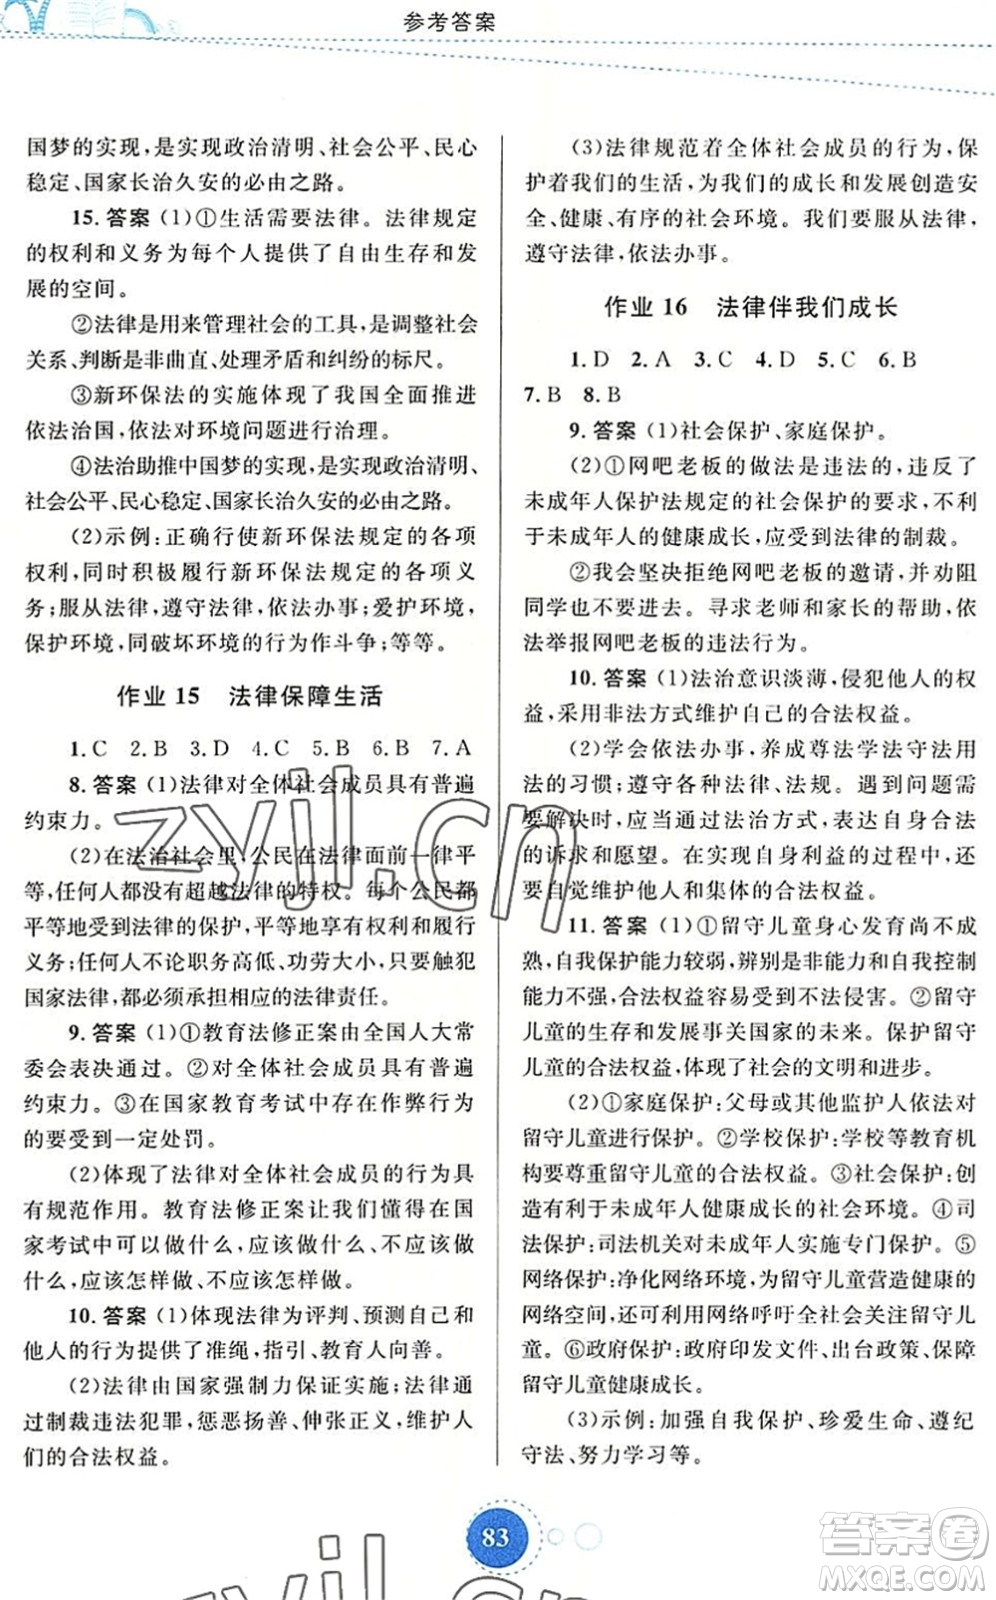 参考答案
国梦的实现,是实现政治清明、社会公平、民心
稳定、国家长治久安的必由之路。
15.答案 (1)①生活需要法律。法律规定
的权利和义务为每个人提供了自由生存和发
展的空间。
②法律是用来管理社会的工具,是调整社会
关系、判断是非曲直、处理矛盾和纠纷的标尺。
③新环保法的实施体现了我国全面推进
依法治国,依法对环境问题进行治理。
④法治助推中国梦的实现,是政治清明、
社会公平、民心稳定、国家长治久安的必由之路。
(2)示例:正确行使新环保法规定的各项
权利,同时积极履行新环保法规定的各项义
务;服从法律,遵守法律,依法办事;爱护环境,
保护环境,同破坏环境的行为作斗争;等等。
作业 15 法律保障生活
1.C 2.B 3.D 4.C 5.B 6.B 7.A
8.答案 (1)法律对全体社会成员具有普遍
约束力。
(2)在法治社会里,公民在法律面前一律平
等,任何人都没有超越法律的特权。每个公民都
平等地受到法律的保护,平等地享有权利和履行
义务;任何人不论职务高低、功劳大小,只要触犯
国家法律,都必须承担相应的法律责任。
9.答案 (1)①教育法修正案由全国人大常
委会表决通过。②对全体社会成员具有普遍
约束力。③在国家教育考试中存在作弊行为
的要受到一定处罚。
(2)体现了法律对全体社会成员的行为具
有规范作用。教育法修正案让我们懂得在国
家考试中可以做什么,应该做什么,不应该做
什么,应该怎样做、不应该怎样做。
10.答案 (1)体现法律为评判、预测自己和
他人的行为提供了准绳,指引、教育人向善。
(2)法律由国家强制力保证实施;法律通
过制裁违法犯罪,惩恶扬善、伸张正义,维护人
们的合法权益。
(3)法律规范着全体社会成员的行为,保
护着我们的生活,为我们的成长和发展创造安
全、健康、有序的社会环境。我们要服从法律,
遵守法律,依法办事。
作业 16 法律伴我们成长
1.D 2.A 3.C 4.D 5.C 6.B
7.B 8.B
9.答案 (1)社会保护、家庭保护。
(2)①网吧老板的做法是违法的,违反了
未成年人保护法规定的社会保护的要求,不利
于未成年人的健康成长,应受到法律的制裁。
②我会坚决拒绝网吧老板的邀请,并劝阻
同学也不要进去。寻求老师和家长的帮助,依
法举报网吧老板的违法行为。
10.答案 (1)法治意识淡薄,侵犯他人的权
益,采用非法方式维护自己的合法权益。
(2)学会依法办事,养成尊法学法守法用
法的习惯;遵守各种法律、法规。遇到问题需
要解决时,应当通过法治方式,表达自身合法
的诉求和愿望。在实现自身利益的过程中,还
要自觉维护他人和集体的合法权益。
11.答案 (1)①留守儿童身心发育尚不成
熟,自我保护能力较弱,辨别是非和自我控制
能力不强,合法权益容易受到不法侵害。②留守
儿童的生存和发展事关国家的未来。保护留守
儿童的合法权益,体现了社会的文明和进步。
(2)①家庭保护:父母或其他监护人依法对
留守儿童进行保护。②学校保护:学校等教育机
构要尊重留守儿童的合法权益。③社会保护:创
造有利于未成年人健康成长的社会环境。④司
法保护:司法机关对未成年人实施专门保护。⑤
网络保护:净化网络环境,为留守儿童营造健康的
网络空间,还可利用网络呼吁全社会关注留守儿
童。⑥政府保护:政府印发文件、出台政策、保障
留守儿童健康成长。
(3)示例:加强自我保护、珍爱生命、遵纪
守法、努力学习等。
83
zyjl.cn
zyjl.cn
答案圈
MXQE.COM